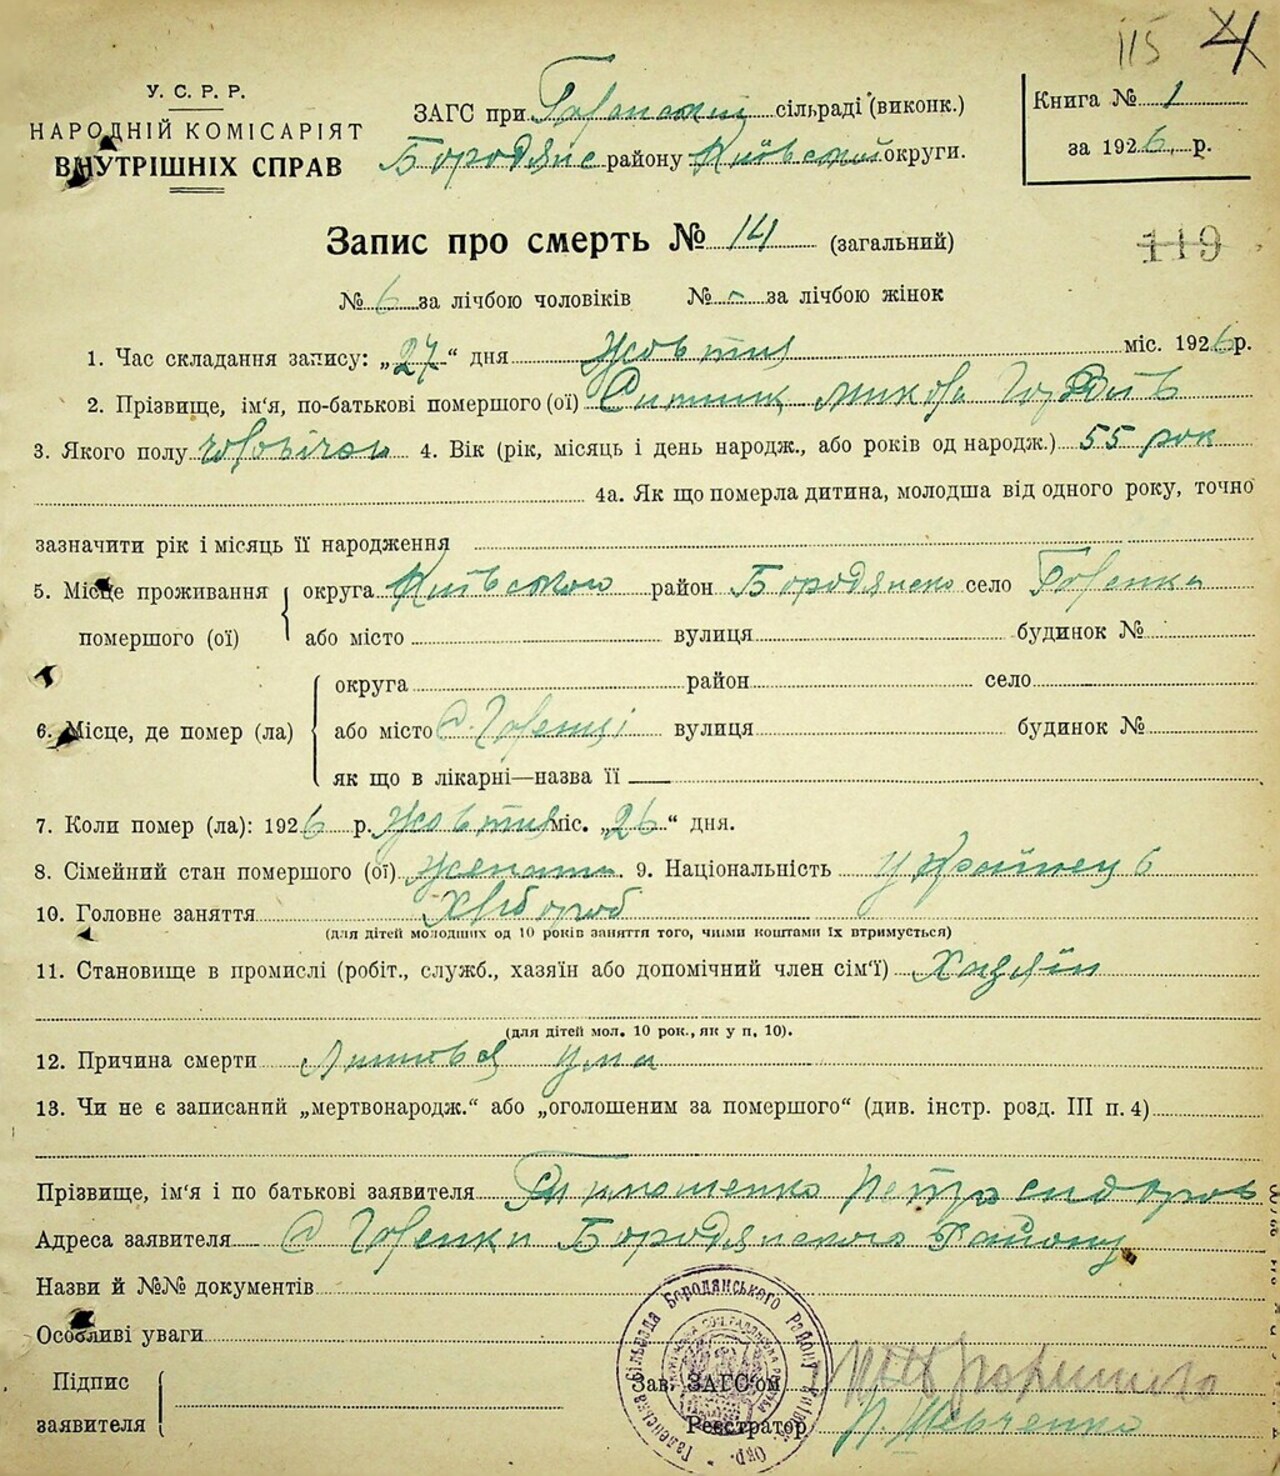 115 4
У. С. Р. Р.
НАРОДНІЙ КОМІСАРІЯТ
ВНУТРІШНІХ СПРАВ
ЗАГС при сільраді (виконк.)
Бородянс району Київській округи.
Книга № 1
за 1926 р.
Запис про смерть № 14 (загальний)
119
№ 6 за лічбою чоловіків № за лічбою жінок
1. Час складання запису: „27“ дня Жовтня міс. 1926 р.
2. Прізвище, ім'я, по-батькові помершого (ої) Ситник Микола Гордіїв
3. Якого полу 4. Вік (рік, місяць і день народж., або років од народж.) 55 рок
4а. Як що померла дитина, молодша від одного року, точно
зазначити рік і місяць її народження
5. Місце проживання помершого (ої)
округа Київською район Бородянско село Галенка
або місто вулиця будинок №
6. Місце, де помер (ла)
округа район село
або місто с. Галенці вулиця будинок №
як що в лікарні—назва її
7. Коли помер (ла): 1926 р. Жовтня міс. „26“ дня.
8. Сімейний стан помершого (ої) 9. Національність Українець
10. Головне заняття Хлібороб
(для дітей молодших од 10 років заняття того, чиїми коштами їх втримується)
11. Становище в промислі (робіт., служб., хазяїн або допомічний член сім'ї) Хазяїн
(для дітей мол. 10 рок., як у п. 10).
12. Причина смерти
13. Чи не є записаний „мертвонародж.“ або „оголошеним за помершого“ (див. інстр. розд. III п. 4)
Прізвище, ім'я і по батькові заявителя Тимошенко Петро Сидоров
Адреса заявителя с Галенки Бородянского Району
Назви й №№ документів
Особливі уваги
Підпис заявителя
Галенська Сільрада Бородянського Району Київ. Окр.
Зав. ЗАГС'ом
Реєстратор П. Шевченко